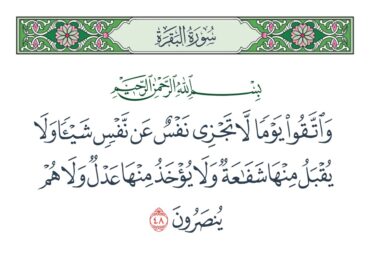 سُورَةُ البَقَرَةِ
بِسۡمِ ٱللَّهِ ٱلرَّحۡمَٰنِ ٱلرَّحِيمِ
وَٱتَّقُواْ يَوۡمٗا لَّا تَجۡزِي نَفۡسٌ عَن نَّفۡسٖ شَيۡـٔٗا وَلَا
يُقۡبَلُ مِنۡهَا شَفَٰعَةٞ وَلَا يُؤۡخَذُ مِنۡهَا عَدۡلٞ وَلَا هُمۡ
يُنصَرُونَ ٤٨